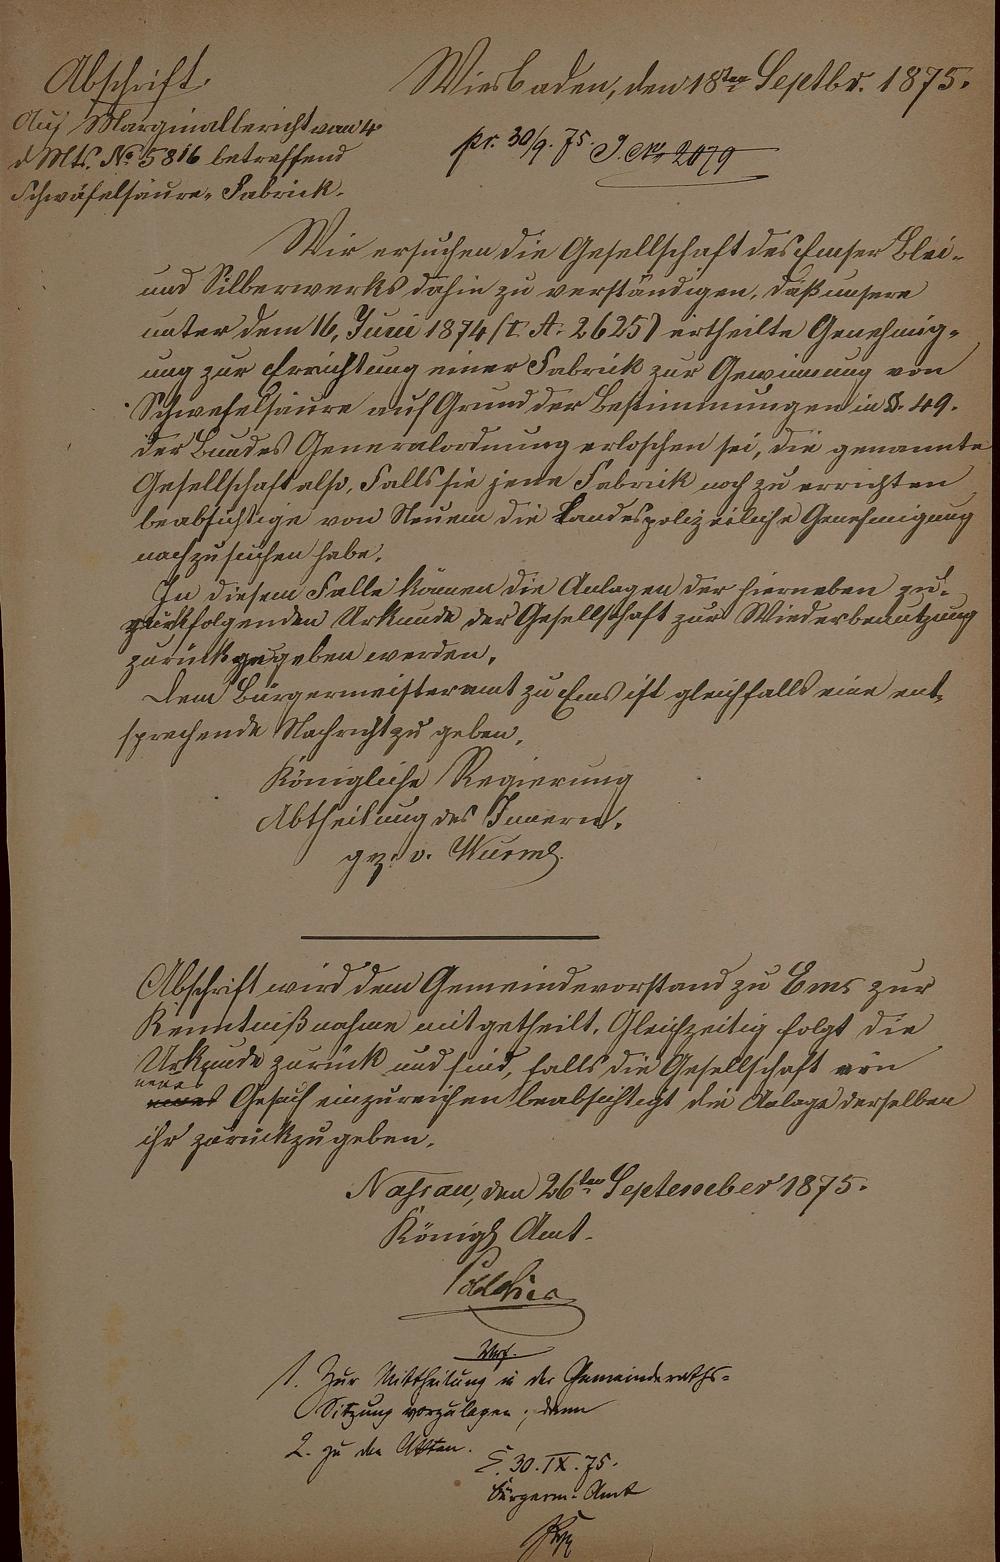 Abschrift.
Wiesbaden, den 18ten Septbr. 1875.
Auf Marginalbericht vom 4
d Mts. No 5816 betreffend
Schwäfelsäure-Fabrick.
pr. 30/9. 75. J. No 2079
Wir ersuchen die Gesellschaft des Emser Blei-
und Silberwerks dahin zu verständigen, daß unsere
unter dem 16, Juni 1874 (I. A: 2625) ertheilte Genehmig-
ung zur Errichtung einer Fabrick zur Gewinnung von
Schwefelsäure auf Grund der Bestimmungen in §. 49.
der Bundes Generalordnung erloschen sei, die genannte
Gesellschaft also, Falls sie jene Fabrick noch zu errichten
beabsichtige von Neuem die Landespolizeiliche Genehmigung
nachzusuchen habe.
In diesem Falle können die Anlagen der hierneben zu-
rückfolgenden Urkunde der Gesellschaft zur Wiederbenutzung
zurückgegeben werden.
Dem Bürgermeisteramt zu Ems ist gleichfalls eine ent-
sprechende Nachricht zu geben.
Königliche Regierung
Abtheilung des Innern.
gez: v. Wurmb.
Abschrift wird dem Gemeindevorstand zu Ems zur
Kenntnißnahme mitgetheilt. Gleichzeitig folgt die
Urkunde zurück und sind, falls die Gesellschaft ein
neues
Gesuch einzureichen beabsichtigt die Anlage derselben
ihr zurückzugeben.
Nassau, den 26ten September 1875.
Königl Amt.
Verf.
1. Zur Mittheilung in der Gemeinderaths-
Sitzung vorzulegen; dann
2. zu den Akten.
E. 30. IX. 75.
Bürgerm: Amt